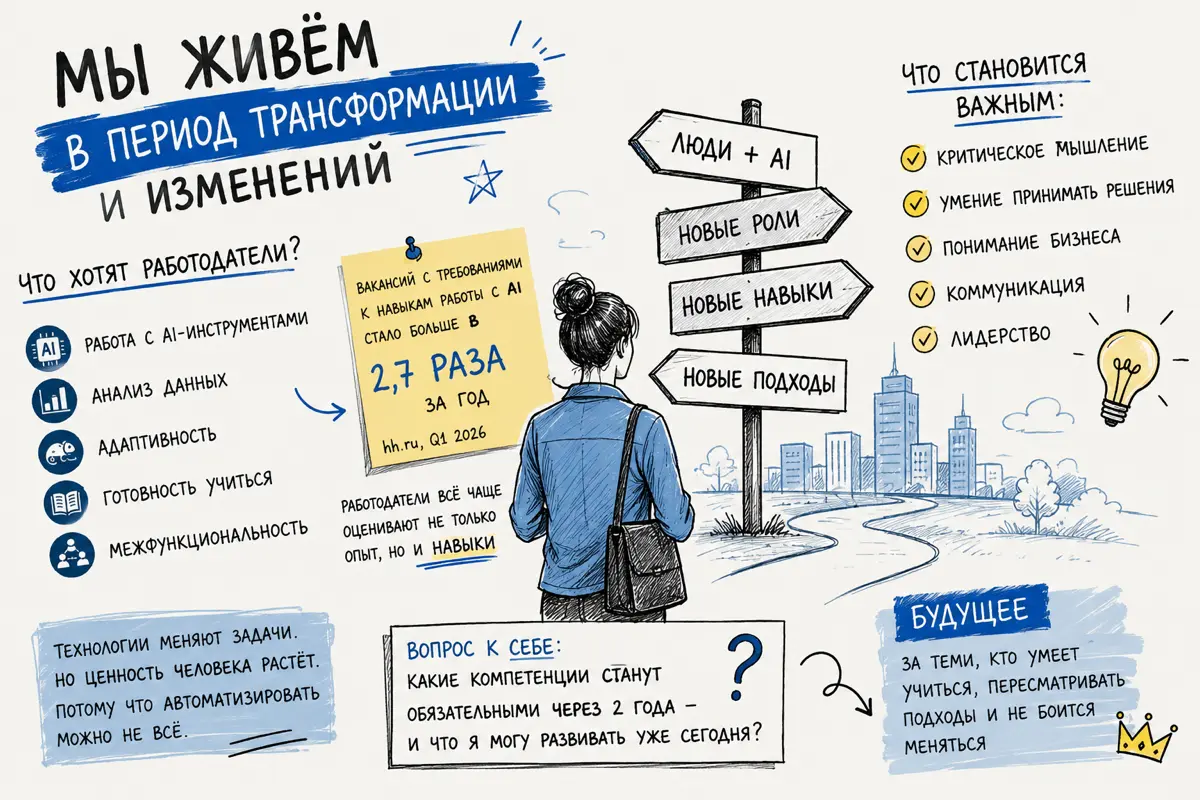 МЫ ЖИВЁМ
В ПЕРИОД ТРАНСФОРМАЦИИ
И ИЗМЕНЕНИЙ
ЧТО ХОТЯТ РАБОТОДАТЕЛИ?
AI
РАБОТА С AI-ИНСТРУМЕНТАМИ
АНАЛИЗ ДАННЫХ
АДАПТИВНОСТЬ
ГОТОВНОСТЬ УЧИТЬСЯ
МЕЖФУНКЦИОНАЛЬНОСТЬ
ВАКАНСИЙ С ТРЕБОВАНИЯМИ
К НАВЫКАМ РАБОТЫ С AI
СТАЛО БОЛЬШЕ В
2,7 РАЗА
ЗА ГОД
hh.ru, Q1 2026
РАБОТОДАТЕЛИ ВСЁ ЧАЩЕ
ОЦЕНИВАЮТ НЕ ТОЛЬКО
ОПЫТ, НО И НАВЫКИ
ЛЮДИ + AI
НОВЫЕ РОЛИ
НОВЫЕ НАВЫКИ
НОВЫЕ ПОДХОДЫ
ЧТО СТАНОВИТСЯ
ВАЖНЫМ:
КРИТИЧЕСКОЕ МЫШЛЕНИЕ
УМЕНИЕ ПРИНИМАТЬ РЕШЕНИЯ
ПОНИМАНИЕ БИЗНЕСА
КОММУНИКАЦИЯ
ЛИДЕРСТВО
ТЕХНОЛОГИИ МЕНЯЮТ ЗАДАЧИ.
НО ЦЕННОСТЬ ЧЕЛОВЕКА РАСТЁТ.
ПОТОМУ ЧТО АВТОМАТИЗИРОВАТЬ
МОЖНО НЕ ВСЁ.
ВОПРОС К СЕБЕ:
КАКИЕ КОМПЕТЕНЦИИ СТАНУТ
ОБЯЗАТЕЛЬНЫМИ ЧЕРЕЗ 2 ГОДА –
И ЧТО Я МОГУ РАЗВИВАТЬ УЖЕ СЕГОДНЯ?
?
БУДУЩЕЕ
ЗА ТЕМИ, КТО УМЕЕТ
УЧИТЬСЯ, ПЕРЕСМАТРИВАТЬ
ПОДХОДЫ И НЕ БОИТСЯ
МЕНЯТЬСЯ